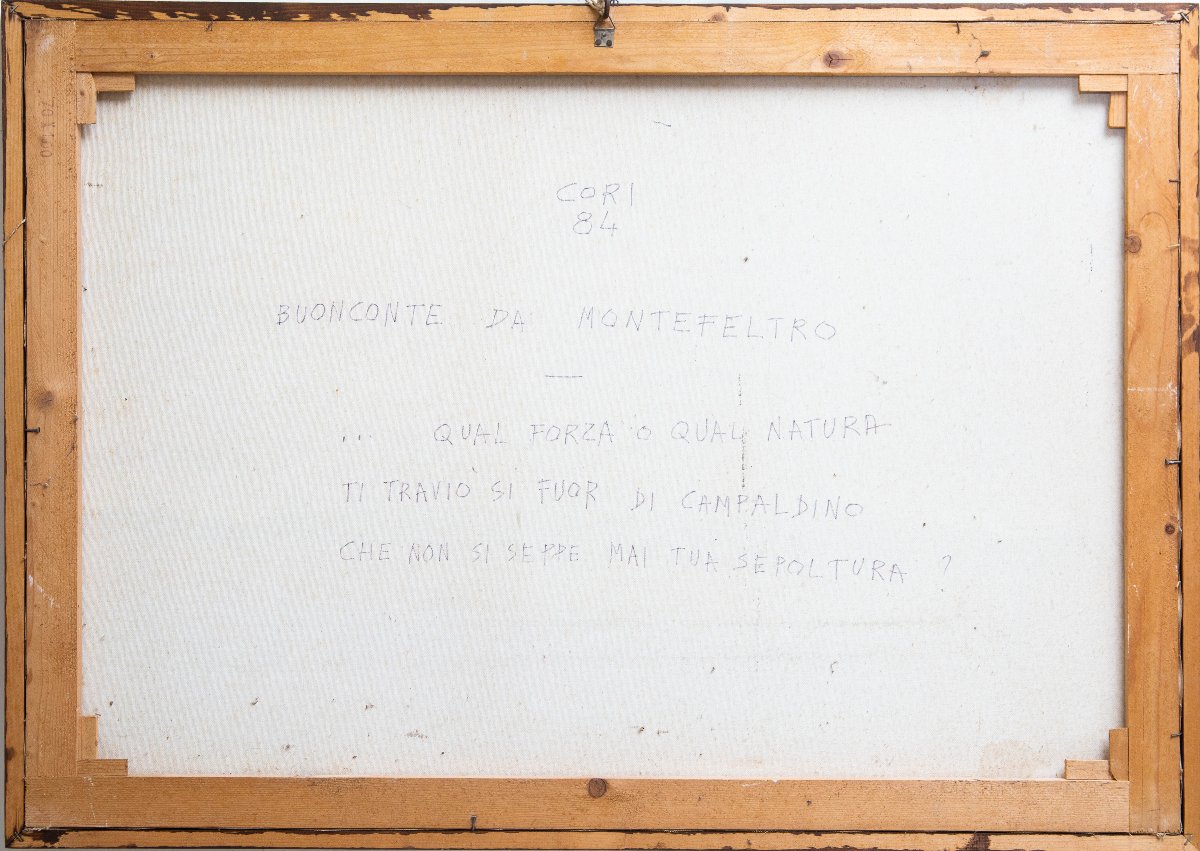 CORI
84
BUONCONTE DA MONTEFELTRO
—
... QUAL FORZA O QUAL NATURA
TI TRAVIÒ SI FUOR DI CAMPALDINO
CHE NON SI SEPPE MAI TUA SEPOLTURA ?